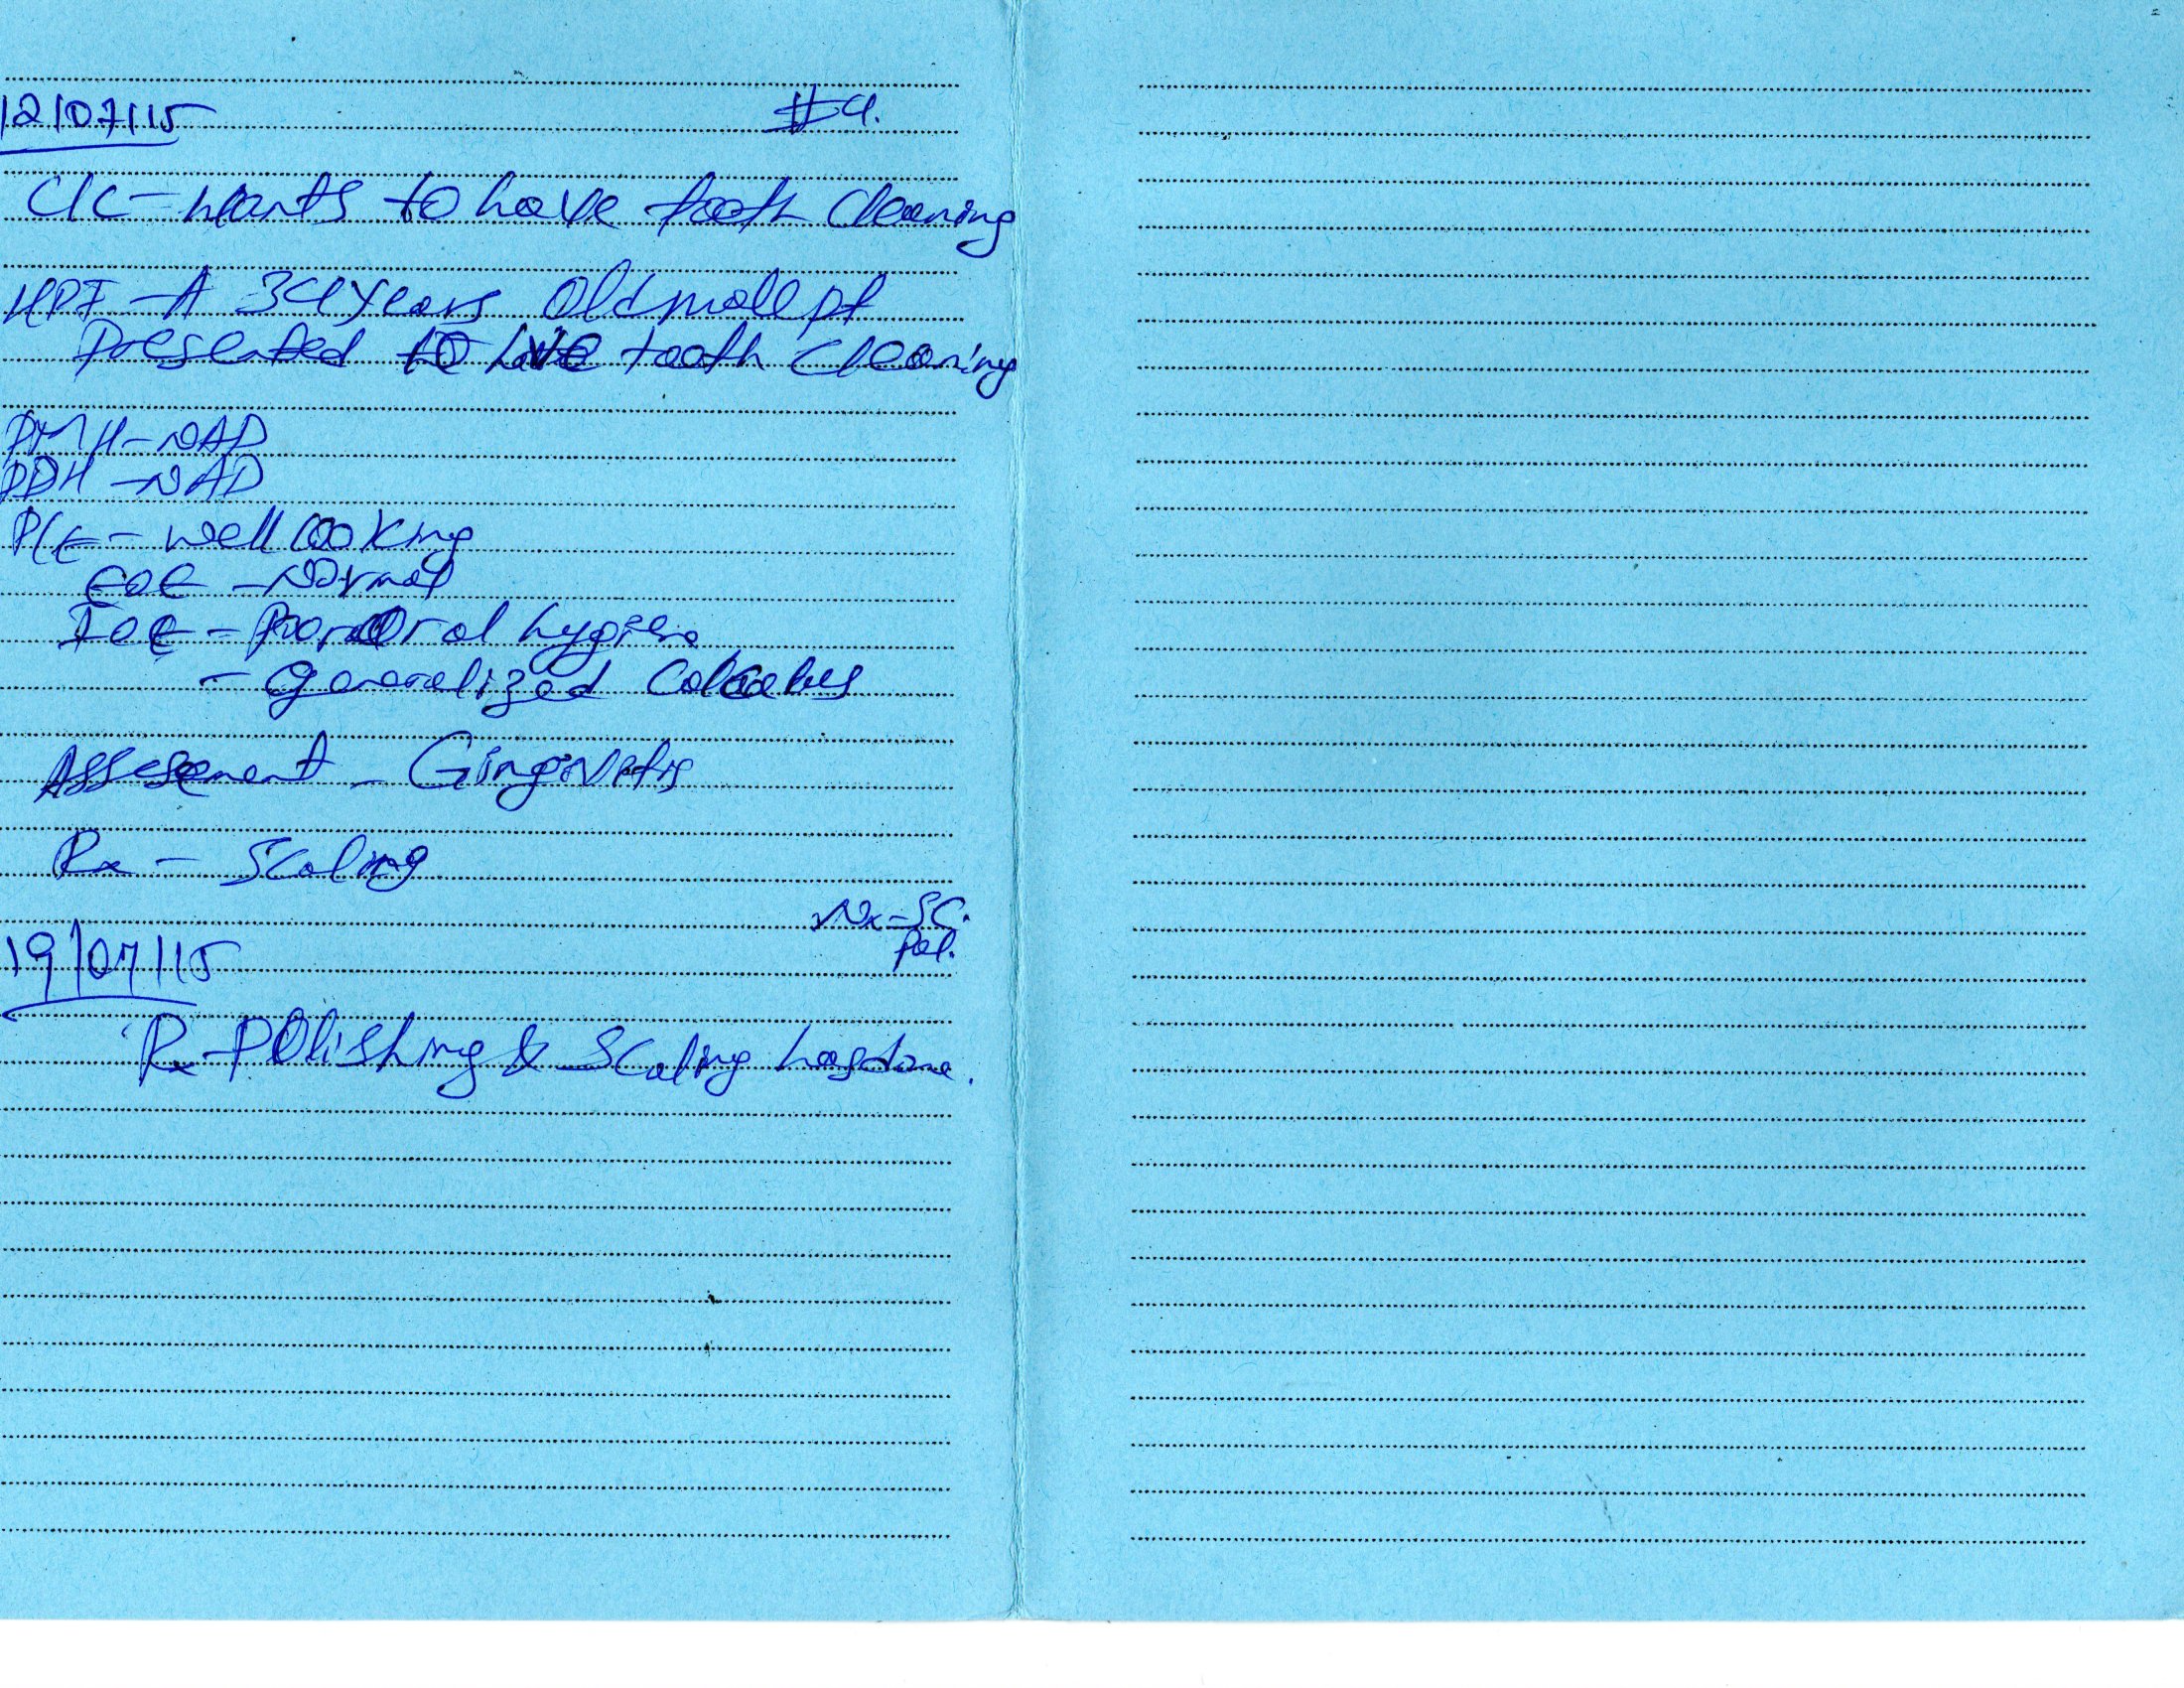 12/07/15 #4.
C/C - wants to have tooth cleaning
HPI - A 34 years old male pt
presented to have tooth cleaning
PMH - NAD
PDH - NAD
P/E - well looking
EOE - Normal
IOE - Poor oral hygiene
- generalized calculus
Assessment - Gingivitis
Rx - Scaling
Nx - SC.
pol.
19/07/15
Rx - Polishing & Scaling has done.